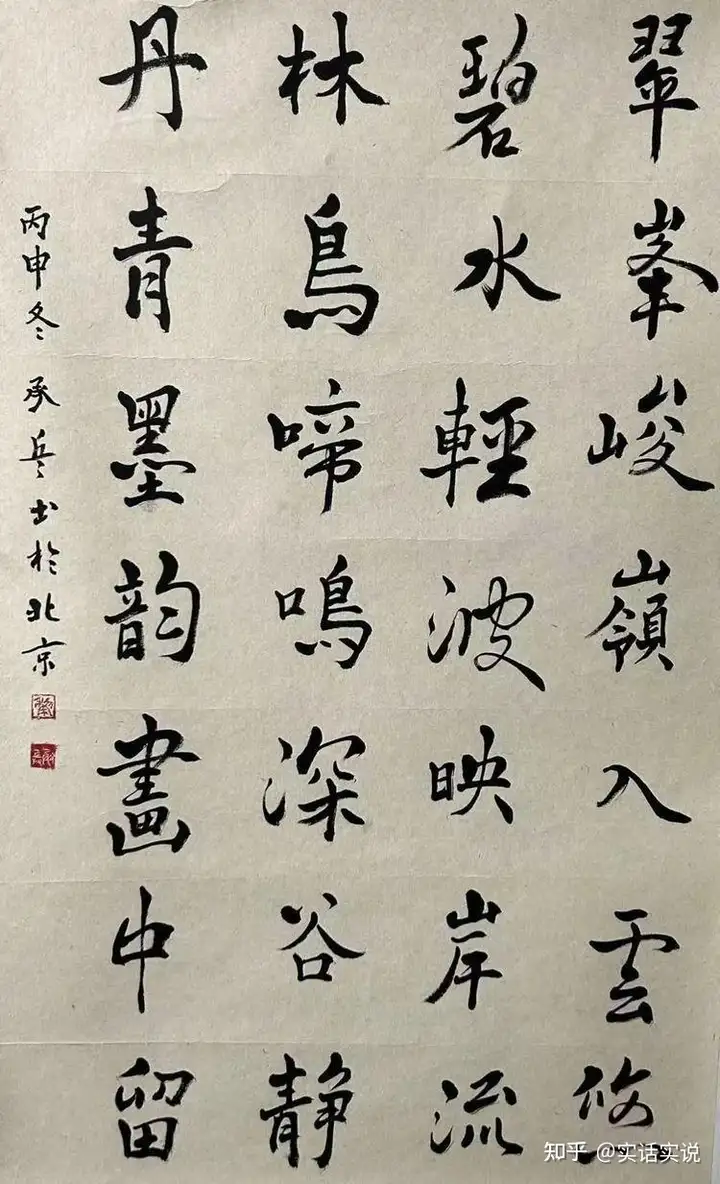 翠峯峻嶺入雲悠
碧水輕波映岸流
林鳥啼鳴深谷静
丹青墨韵畫中留
丙申冬 承兵书於北京
知乎 @实话实说